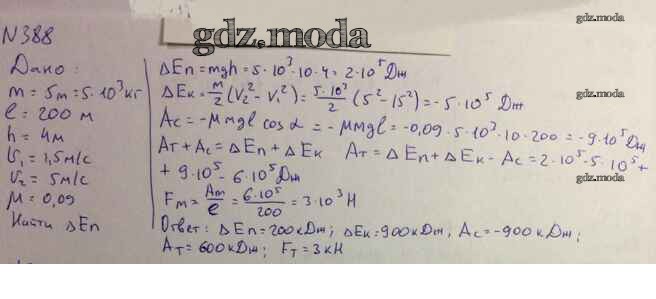 N388
gdz.moda
gdz.moda
Дано:
m = 5т = 5·10³кг
ℓ = 200 м
h = 4м
υ₁ = 1,5м/с
υ₂ = 5м/с
μ = 0,09
Найти ΔEп
ΔEп = mgh = 5·10³·10·4 = 2·10⁵Дж
ΔEк = m/2 (V₂² - V₁²) = 5·10³/2 (5² - 15²) = -5·10⁵ Дж
Aс = -μmgl cos α = -μmgl = -0,09·5·10³·10·200 = -9·10⁵Дж
Aт + Aс = ΔEп + ΔEк Aт = ΔEп + ΔEк - Aс = 2·10⁵ - 5·10⁵ +
gdz.moda
+ 9·10⁵ - 6·10⁵Дж
gdz.moda
Fм = Aм/ℓ = 6·10⁵/200 = 3·10³ Н
Ответ: ΔEп = 200кДж; ΔEк = 900кДж; Aс = -900кДж;
Aт = 600кДж; Fт = 3кН